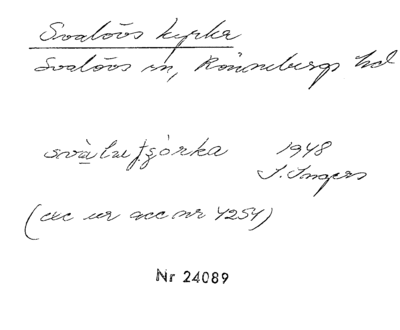 Svalövs kyrka
Svalövs sn, Rönnebergs hd
1948
I. Ingers
(exc ur acc nr 4254)
Nr 24089